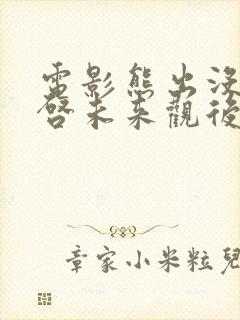 電影熊出沒
啓未來觀後
章家小米粒兒